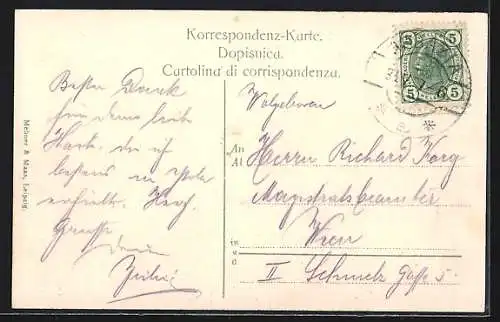 Korrespondenz-Karte.
Dopisnica.
Cartolina di corrispondenza.
5 5
5 5
Besten Dank
für deine liebe
Karte, die ich
bestens in Pola
erhielt. Herz.
Grüsse
dein
Meissner & Mann, Leipzig.
Wohlgeboren
An
Al
Herrn Richard Korg
Magistratsbeamter
in
Wien
II
Schmelz Gasse 5